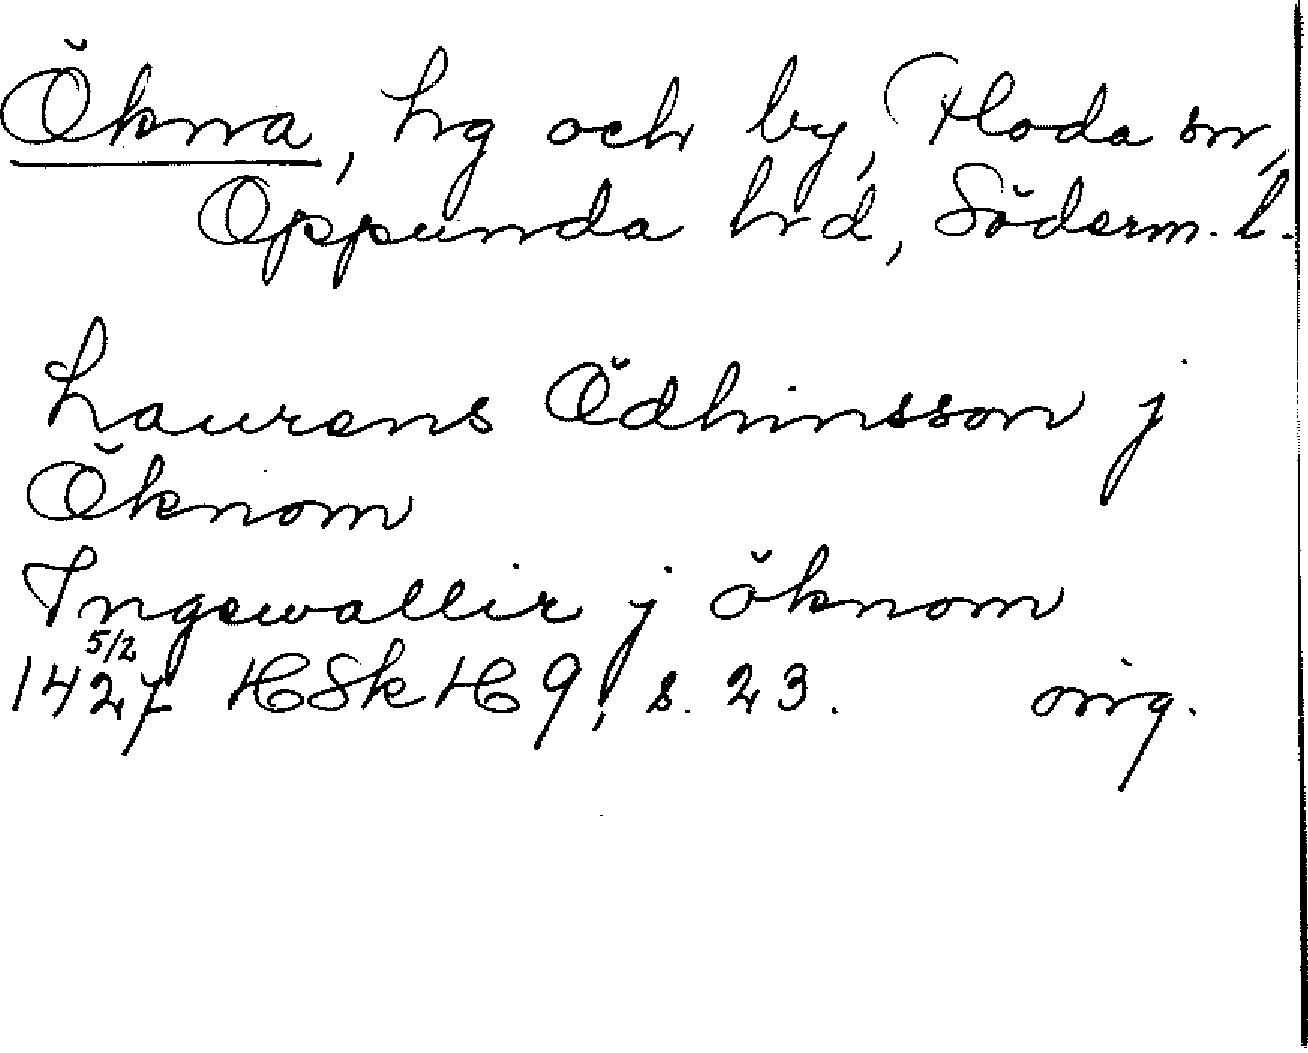 Ökna, hg och by, Floda sn,
Oppunda hrd, Söderm. l.
Laurens Ödhinsson j
Öknom
Ingewallir j öknom
5/2
1427 HSkH 9, s. 23. orig.